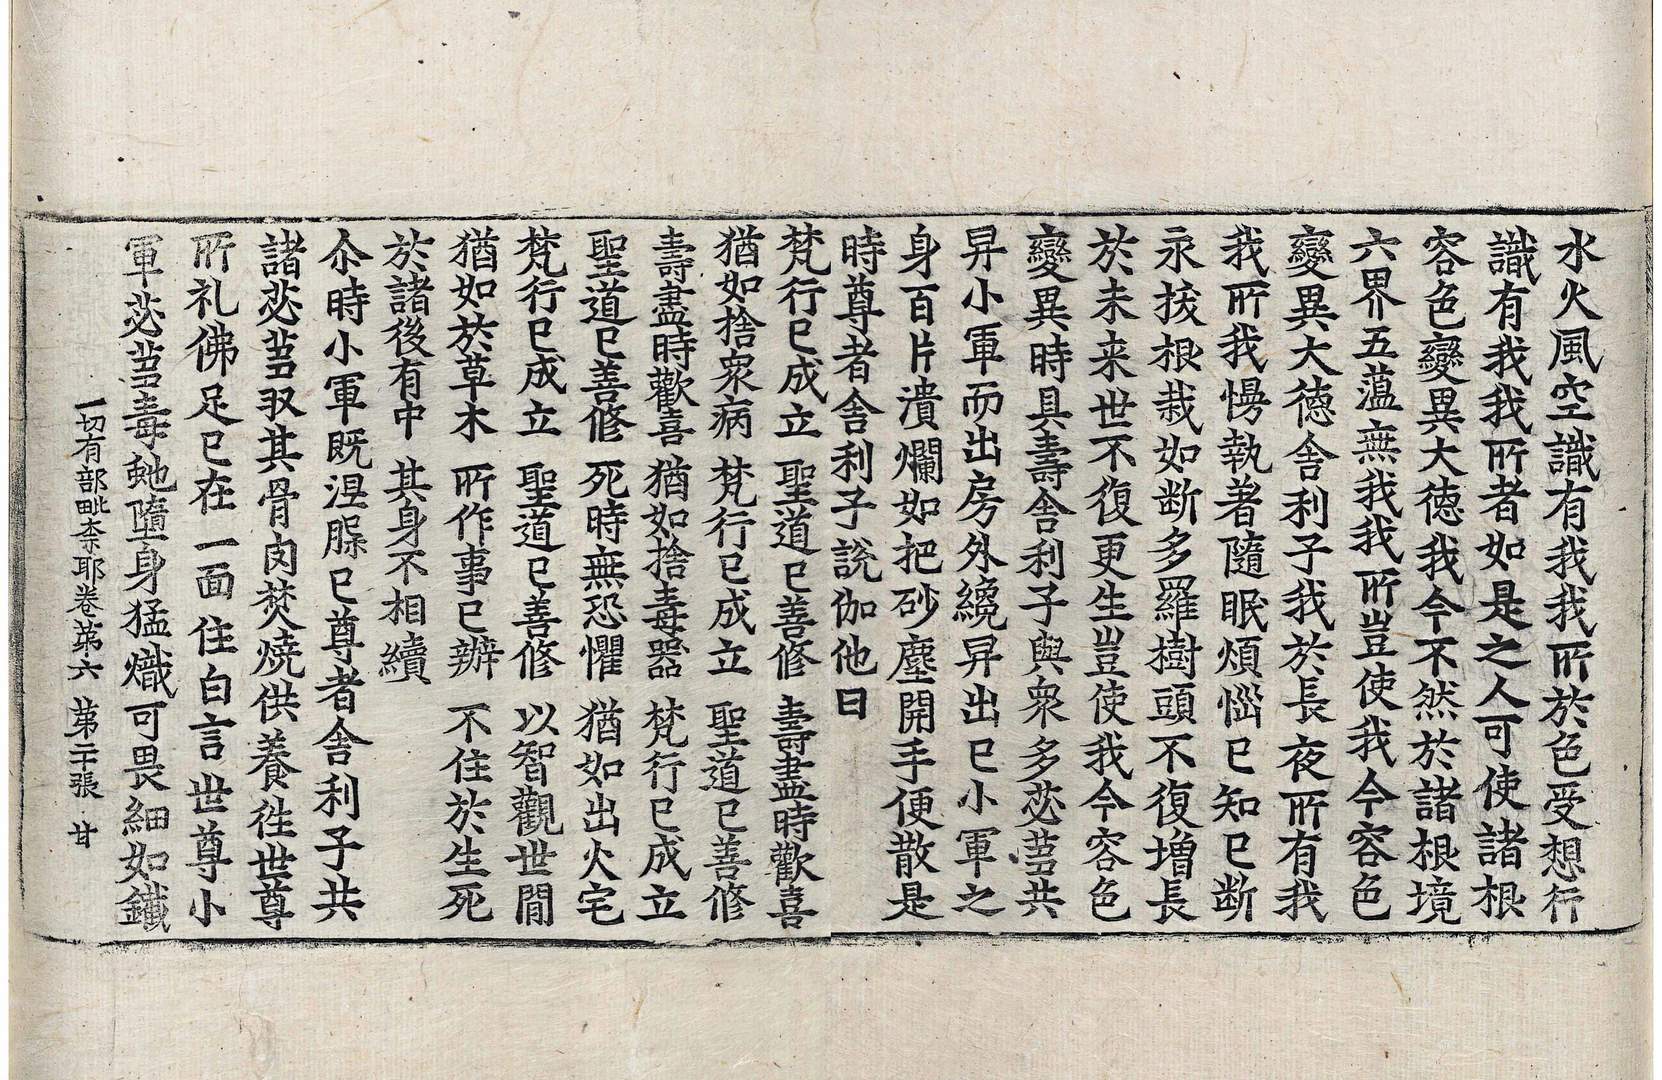 水火風空識有我我所於色受想行
識有我我所者如是之人可使諸根
容色變異大德我今不然於諸根境
六界五薀無我我所豈使我今容色
變異大德舍利子我於長夜所有我
我所我慢執著隨眠煩惱已知已断
永拔根栽如断多羅樹頭不復增長
於未来世不復更生豈使我今容色
變異時具壽舍利子與衆多苾蒭共
昇小軍而出房外纔昇出已小軍之
身百片潰爛如把砂塵開手便散是
時尊者舍利子說伽他曰
梵行已成立　聖道已善修　壽盡時歡喜
猶如捨衆病　梵行已成立　聖道已善修
壽盡時歡喜　猶如捨毒器　梵行已成立
聖道已善修　死時無恐懼　猶如出火宅
梵行已成立　聖道已善修　以智觀世間
猶如於草木　所作事已辦　不住於生死
於諸後有中　其身不相續
尒時小軍既涅槃已尊者舍利子共
諸苾蒭収其骨肉焚燒供養徃世尊
所礼佛足已在一面住白言世尊小
軍苾蒭毒虵墮身猛熾可畏細如鐵
一切有部毗奈耶卷第六　第二十張　甘